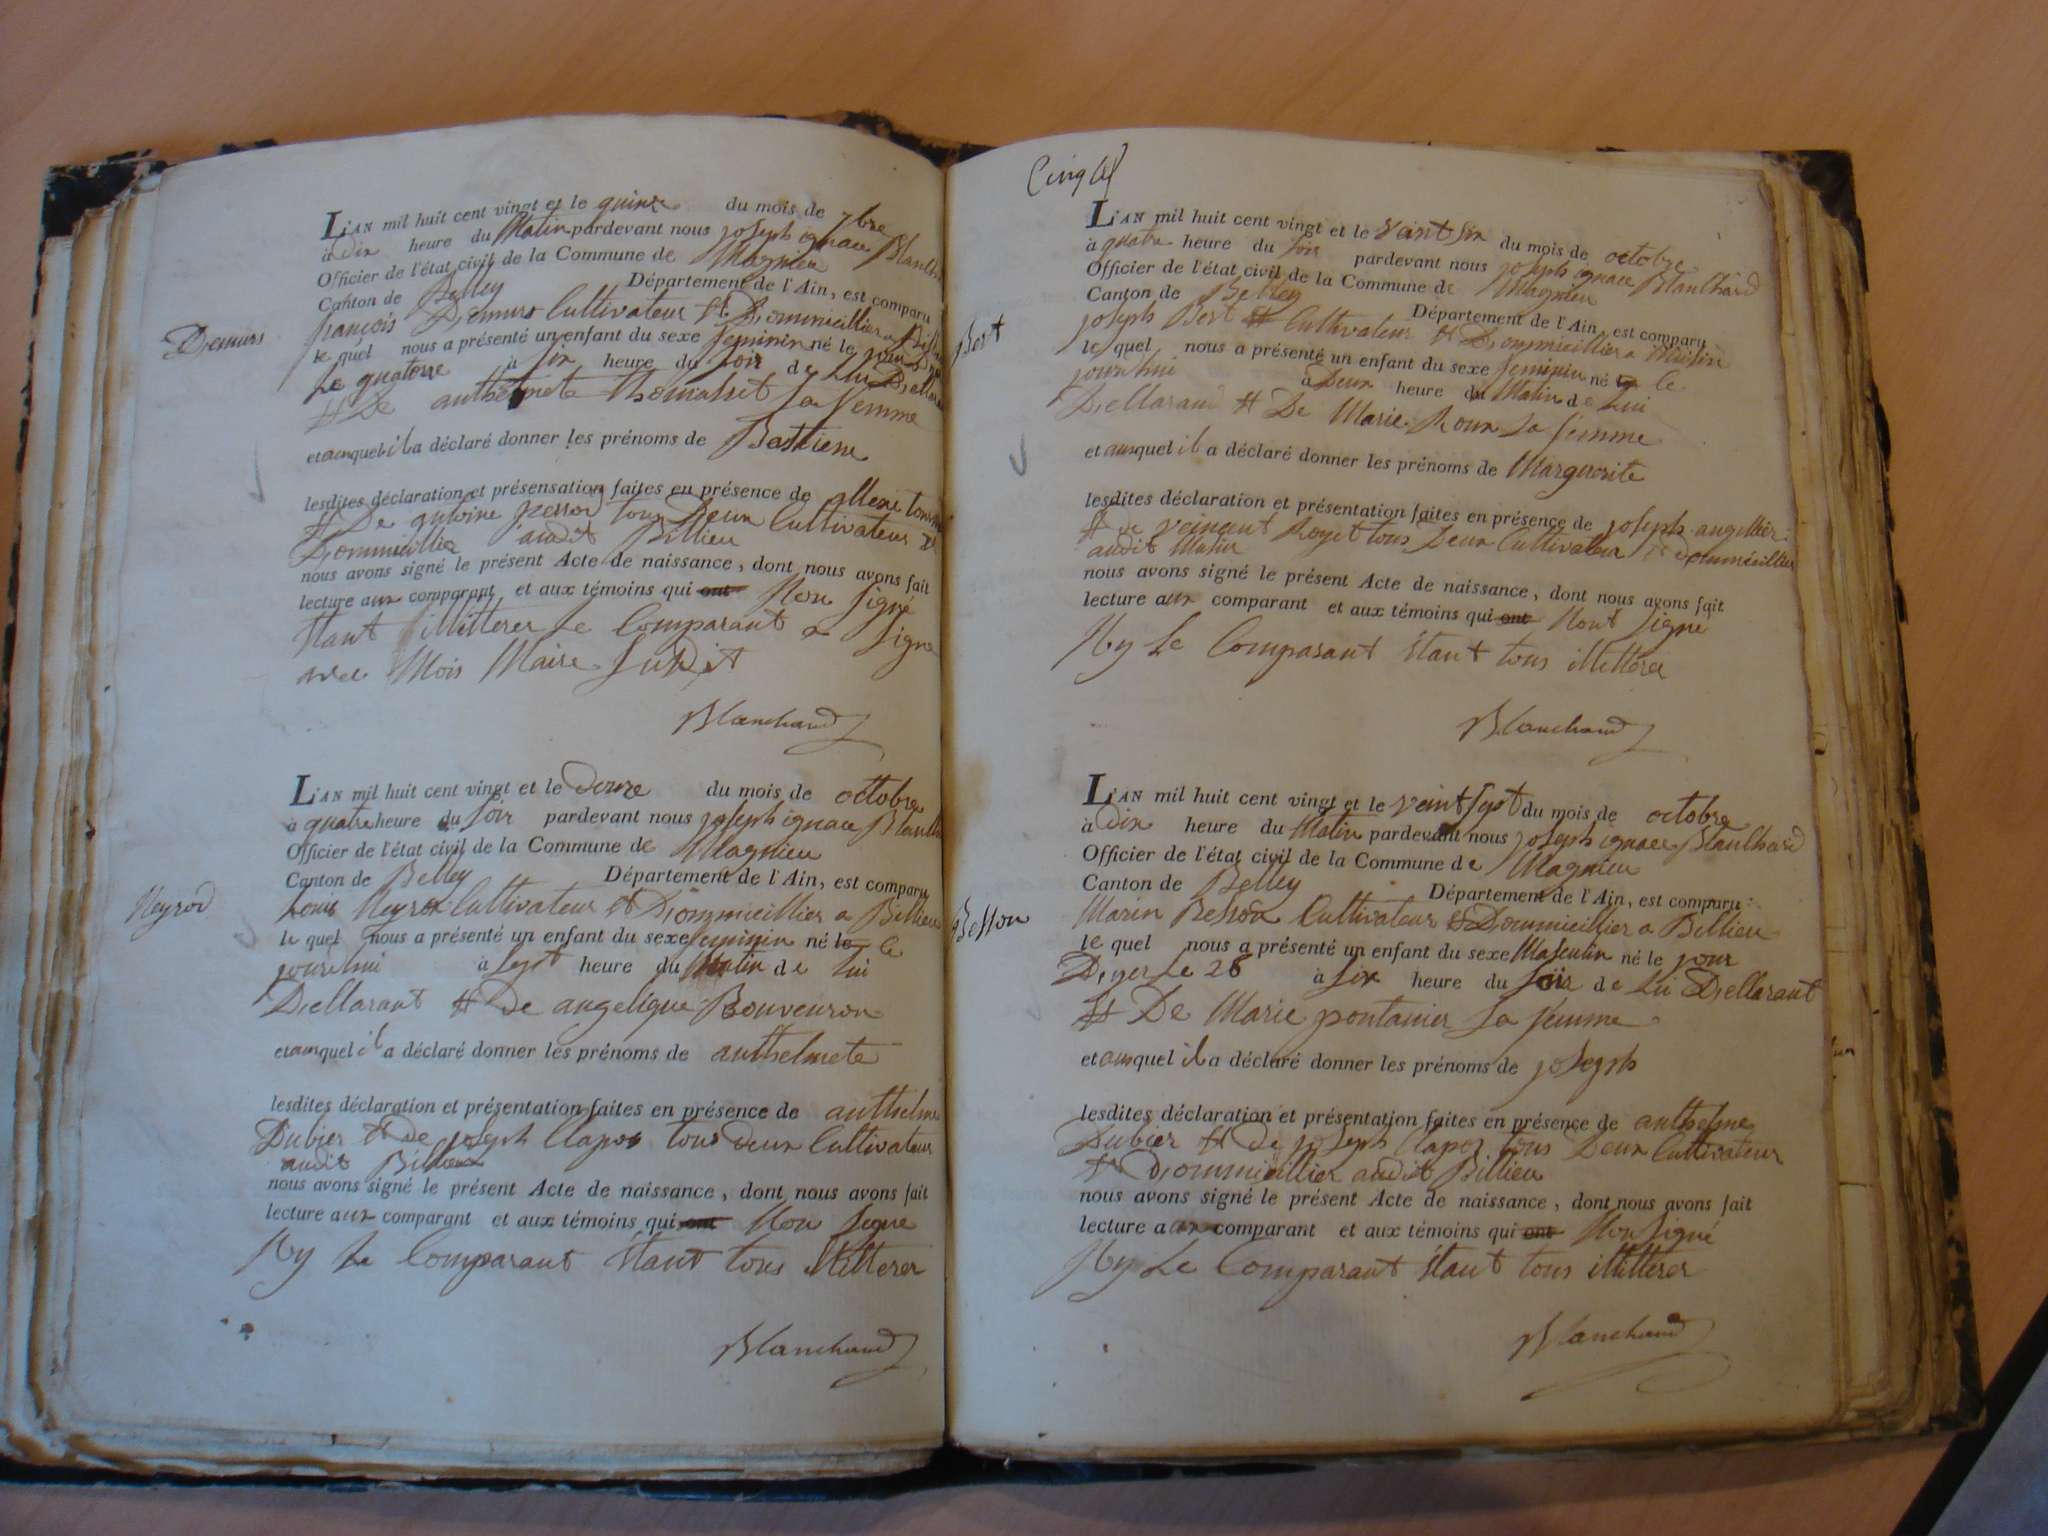 L'AN mil huit cent vingt et le quinze du mois de 7bre
à Dix heure du Matin pardevant nous joseph ignace Blanchard
Officier de l'état civil de la Commune de Magnieu
Canton de Belley Département de l'Ain, est comparu
Demurs
françois Demurs Cultivateur et Dommicillier a
le quel nous a présenté un enfant du sexe feminin né le jour
Le quatorse à six heure du soir de Lui
et De anthelmete thomasset sa femme
et auquel il a déclaré donner les prénoms de Bastiene
lesdites déclaration et présensation faites en présence de
et De tous Deux Cultivateur et
Dommicillié audit Billieu
nous avons signé le présent Acte de naissance, dont nous avons fait
lecture aux comparant et aux témoins qui ont Non signé
Étant illitterer Le Comparant a signe
avec Mois Maire Sudit
Blanchard
L'AN mil huit cent vingt et le Douze du mois de octtobre
à quatre heure du soir pardevant nous joseph ignace
Officier de l'état civil de la Commune de Magnieu
Canton de Belley Département de l'Ain, est comparu
Neyrod
Louis Neyrod Cultivateur et Dommicillier a Billieu
le quel nous a présenté un enfant du sexe feminin né le ce
jourdhui à sept heure du Matin de Lui
Dellarant et De angelique Bouveuron
et auquel il a déclaré donner les prénoms de anthelmete
lesdites déclaration et présentation faites en présence de anthelme
Dubier et de joseph Clapos tous deux Cultivateur
audit Billieu
nous avons signé le présent Acte de naissance, dont nous avons fait
lecture aux comparant et aux témoins qui ont Non signe
Ny Le Comparant Étant tous illitterer
Blanchard
L'AN mil huit cent vingt et le Vaint six du mois de octobre
à quatre heure du soir pardevant nous joseph ignace Blanchard
Officier de l'état civil de la Commune de Magnieu
Canton de Belley Département de l'Ain, est comparu
Bert
joseph Bert et Cultivateur et Dommicillier a
le quel nous a présenté un enfant du sexe feminin né le ce
jourdhui à Deux heure du Matin de Lui
Dellarand et De Marie Roux sa femme
et auquel il a déclaré donner les prénoms de Marguerite
lesdites déclaration et présentation faites en présence de joseph angellier
et de veincent Royet tous Deux Cultivateur et dommicillier
audit
nous avons signé le présent Acte de naissance, dont nous avons fait
lecture aux comparant et aux témoins qui ont Nont signé
Ny Le Comparant Étant tous illitterer
Blanchard
L'AN mil huit cent vingt et le veint sept du mois de octobre
à Dix heure du Matin pardevant nous joseph ignace Blanchard
Officier de l'état civil de la Commune de Magnieu
Canton de Belley Département de l'Ain, est comparu
Besson
Marin Besson Cultivateur et Dommicillier a Billieu
le quel nous a présenté un enfant du sexe Masculin né le jour
Dyer Le 26 à six heure du soir de Lui Dellarant
et De Marie pontanier sa femme
et auquel il a déclaré donner les prénoms de joseph
lesdites déclaration et présentation faites en présence de anthelme
Dubier et De joseph Clapos tous Deux Cultivateur
et Dommicillier audit Billieu
nous avons signé le présent Acte de naissance, dont nous avons fait
lecture aux comparant et aux témoins qui ont Non signé
Ny Le Comparant Étant tous illitterer
Blanchard